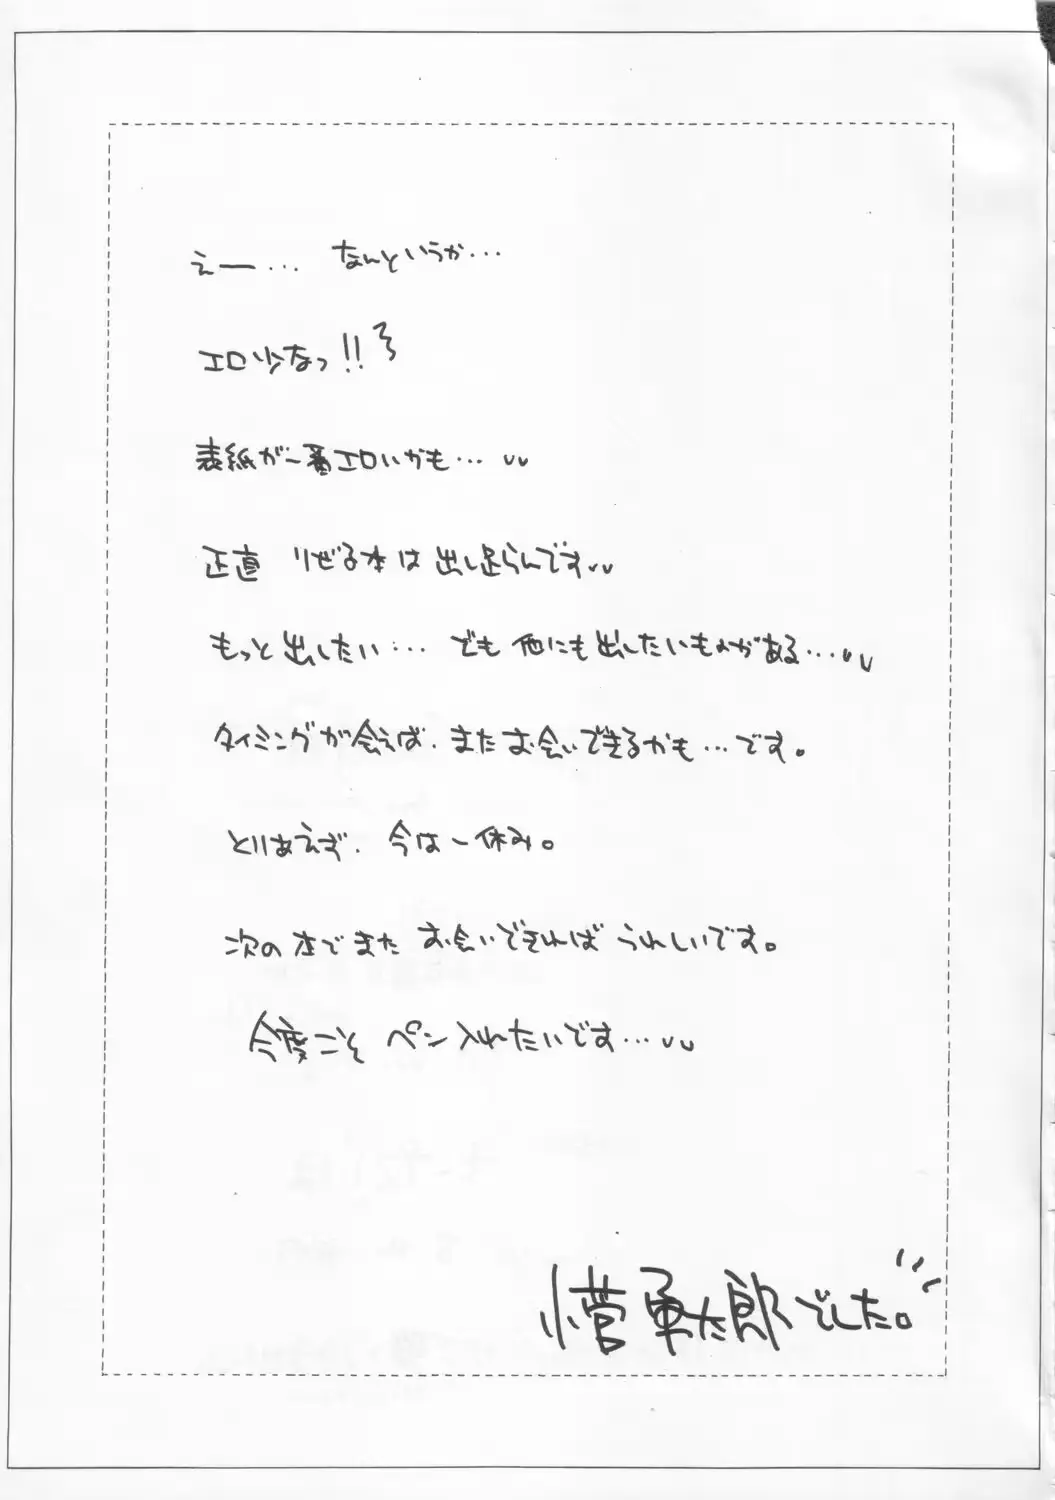 えー… なんというか…
エロ少なっ!!
表紙が一番エロいかも…
正直 りぜる本は 出し足らんです
もっと出したい… でも 他にも出したいものがある…
タイミングが会えば、またお会いできるかも…です。
とりあえず、今は一休み。
次の本でまた お会いできればうれしいです。
今度こそ ペン入れたいです…
小菅勇太郎でした。